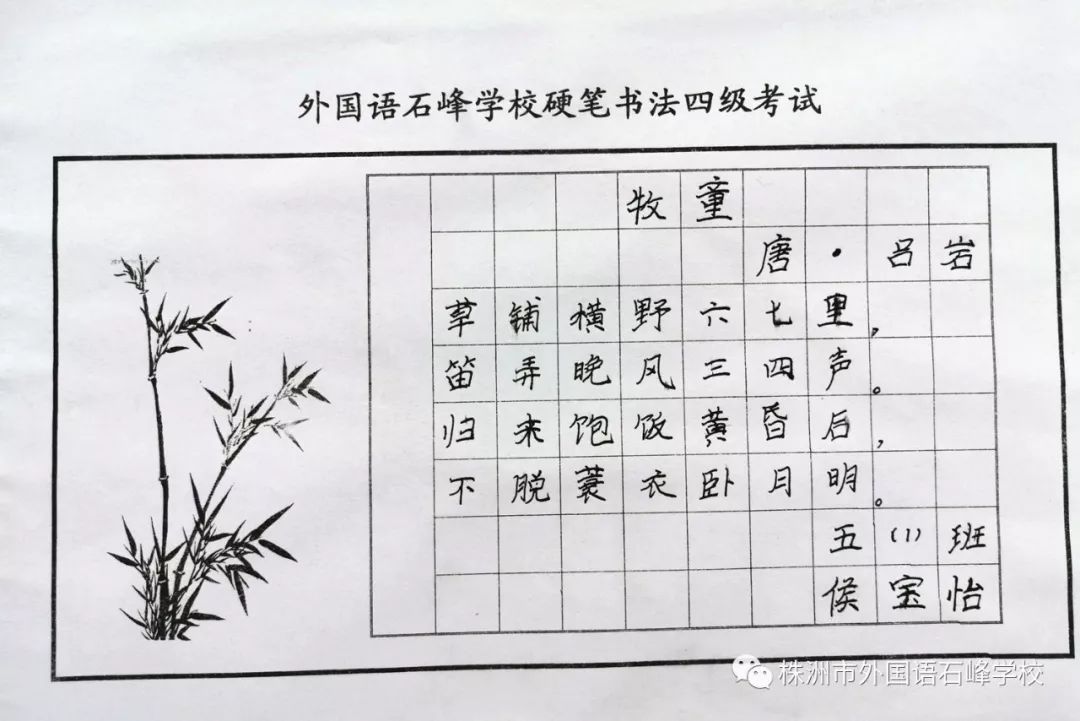 外国语石峰学校硬笔书法四级考试
牧童
唐·吕岩
草铺横野六七里，
笛弄晚风三四声。
归来饱饭黄昏后，
不脱蓑衣卧月明。
五(1)班
侯宝怡
株洲市外国语石峰学校